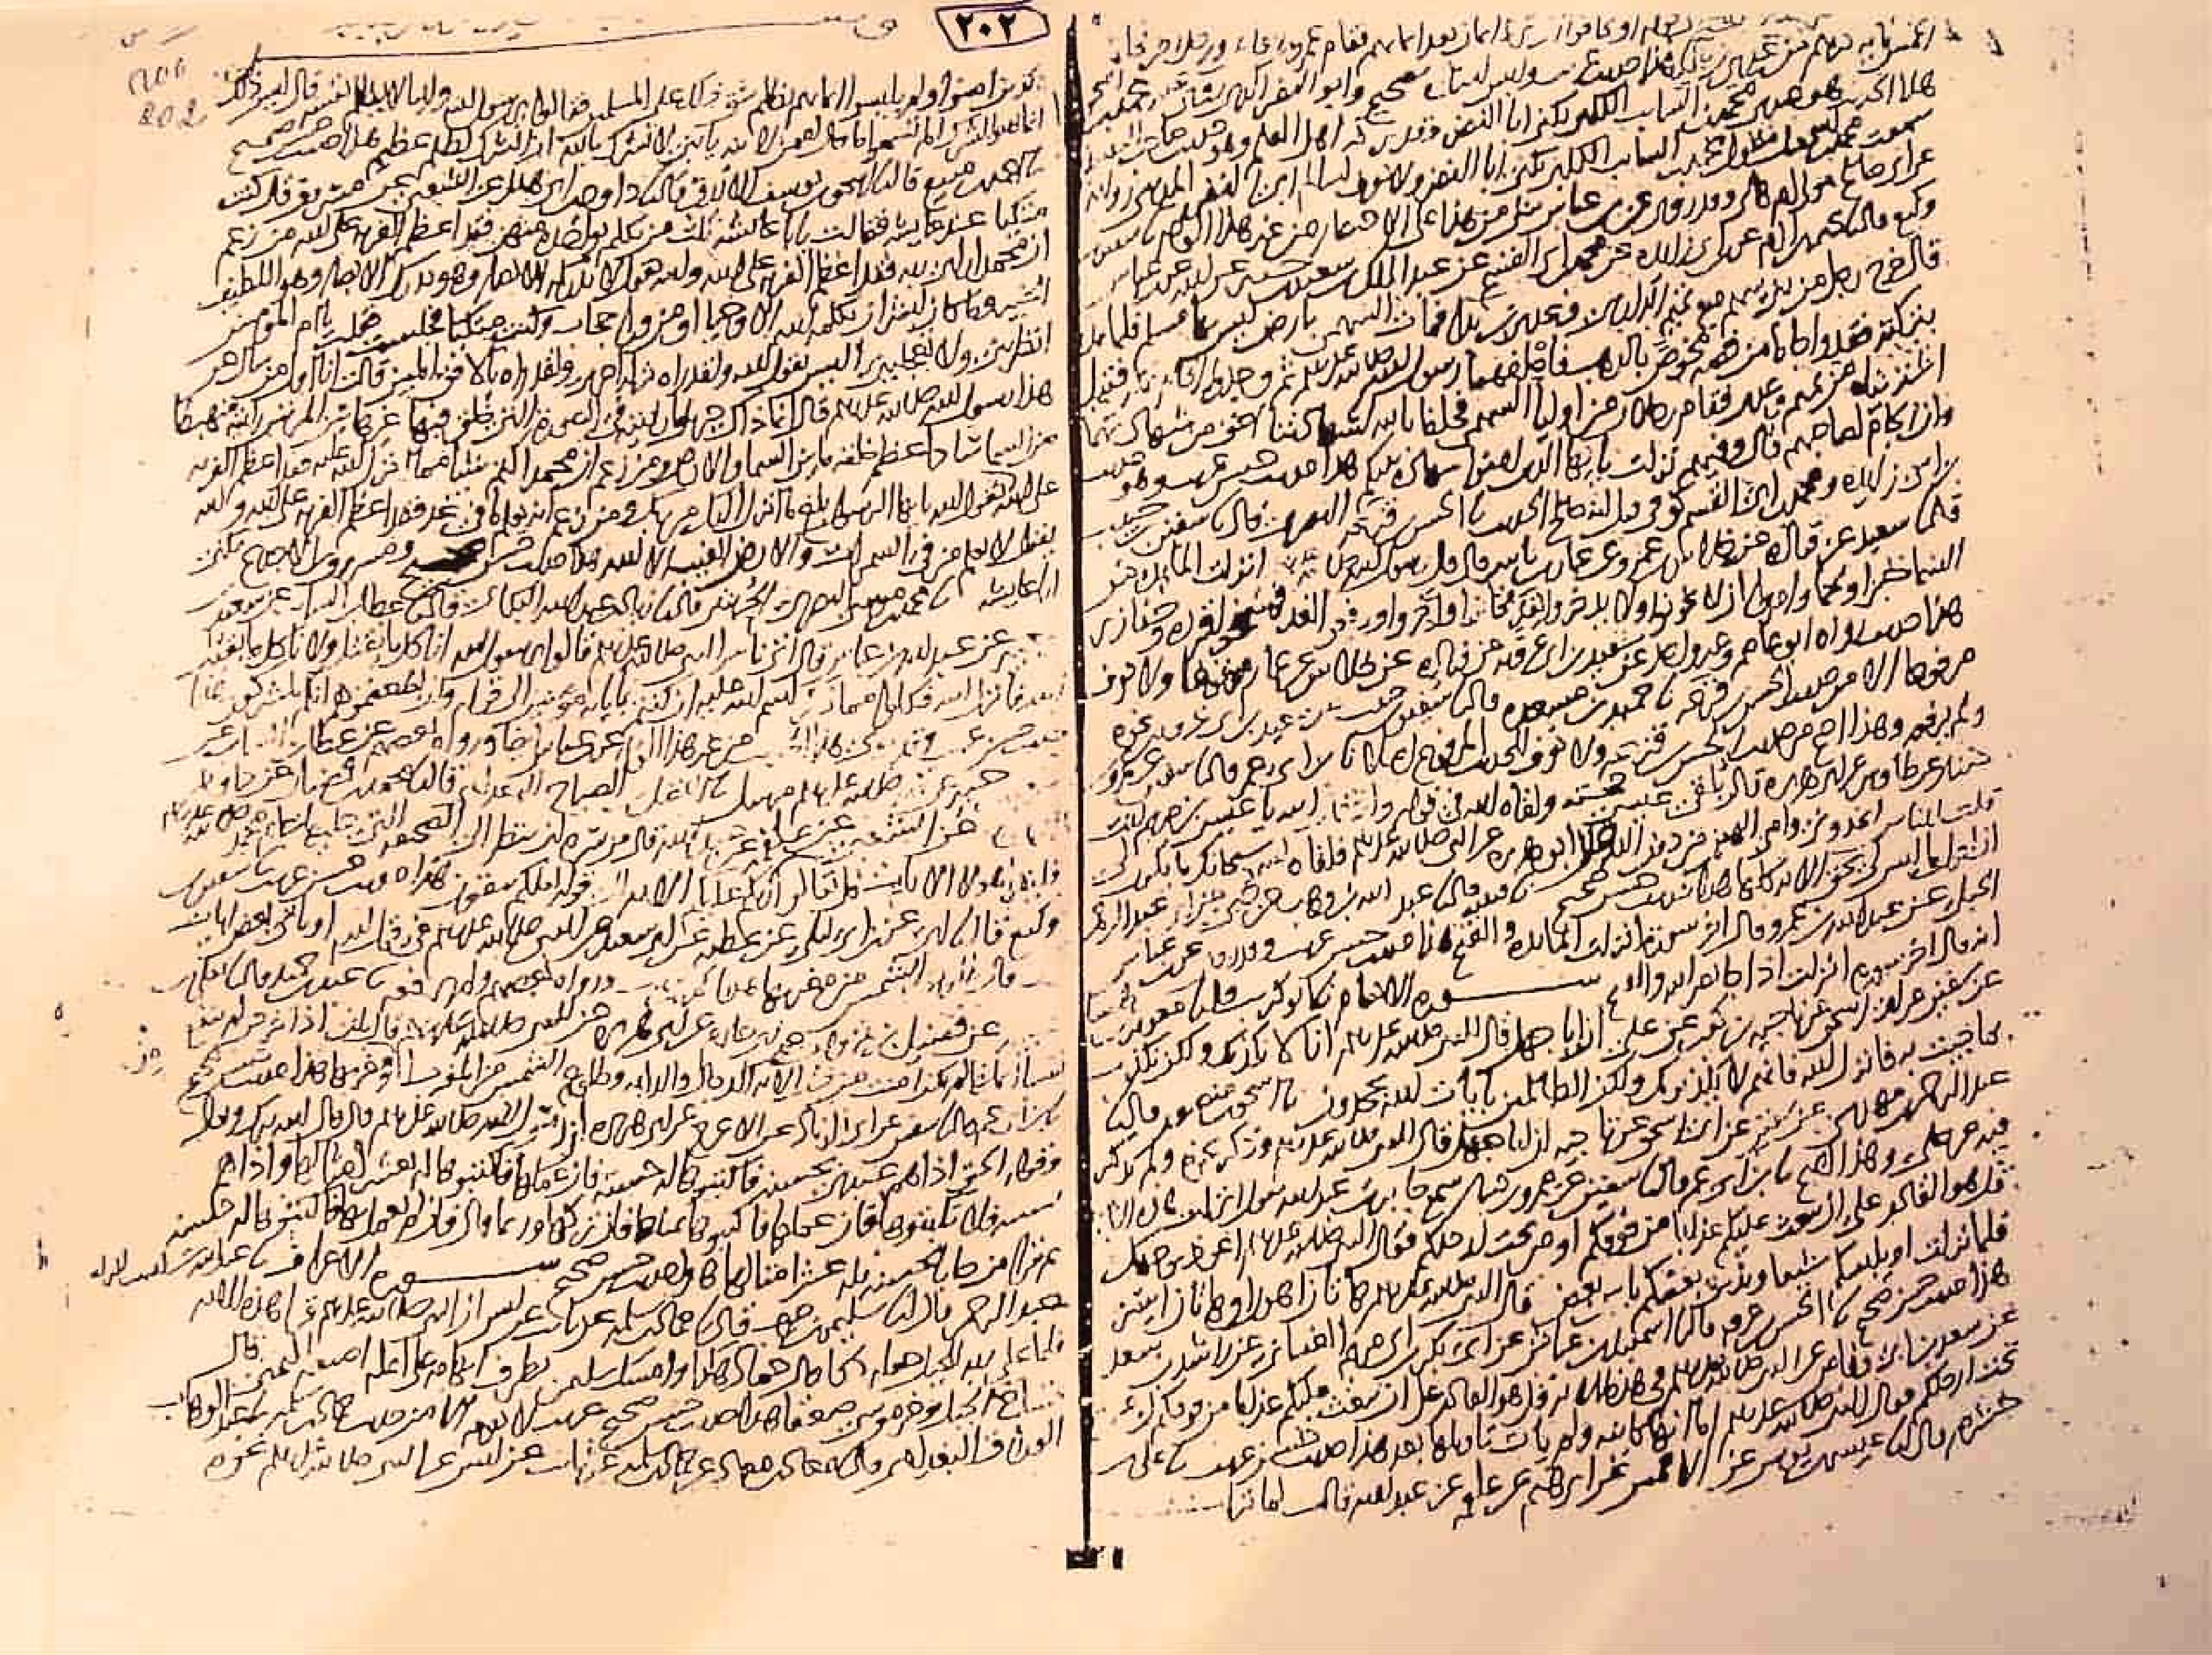 او يخافوا ان ترد ايمان بعد ايمانهم فقام عمرو بن العاص ورجل آخر فحلفا
هذا حديث غريب وليس اسناده بصحيح وابو النضر الذي روى عنه محمد بن اسحق
هذا الحديث هو عندي محمد بن السايب الكلبي يكنى ابا النضر وقد تركه اهل العلم وهو صاحب التفسير
سمعت محمد بن اسمعيل يقول محمد بن السايب الكلبي يكنى ابا النضر ولا نعرف لسالم ابي النضر المديني رواية
عن ابي صالح مولى ام هاني وقد روي عن ابن عباس شي من هذا على الاختصار من غير هذا الوجه نا سفين بن
وكيع قال نا يحيى بن ادم عن ابن ابي زايده عن محمد بن ابي القسم عن عبد الملك بن سعيد بن جبير عن ابيه عن ابن عباس
قال خرج رجل من بني سهم مع تميم الداري وعدي بن بدا فمات السهمي بارض ليس بها مسلم فلما قدما
بتركته فقدوا جاما من فضه مخوصا بالذهب فاحلفهما رسول الله صلى الله عليه وسلم ثم وجدوا الجام بمكه فقيل
اشتريناه من تميم وعدي فقام رجلان من اوليا السهمي فحلفا بالله لشهادتنا احق من شهادتهما
وان الجام لصاحبهم قال وفيهم نزلت يا ايها الذين امنوا شهادة بينكم هذا حديث حسن غريب وهو حديث
ابن ابي زايده ومحمد بن ابي القسم كوفي قيل انه صالح الحديث نا الحسن بن قزعه البصري قال نا سفين بن حبيب
قال نا سعيد عن قتادة عن خلاس بن عمرو عن عمار بن ياسر قال قال رسول الله صلى الله عليه انزلت المايده من
السما خبزا ولحما وامروا ان لا يخونوا ولا يدخروا لغد فخانوا وادخروا ورفعوا لغد فمسخوا قردة وخنازير
هذا حديث رواه ابو عاصم وغير واحد عن سعيد بن ابي عروبه عن قتادة عن خلاس عن عمار موقوفا ولا نعرفه
مرفوعا الا من حديث الحسن بن قزعه نا حميد بن مسعده قال نا سفين بن حبيب عن سعيد بن ابي عروبه نحوه
ولم يرفعه وهذا اصح من حديث الحسن بن قزعه ولا نعرف للحديث المرفوع اصلا نا ابن ابي عمر قال نا سفين عن عمرو
بن دينار عن طاوس عن ابي هريره قال تلقى عيسى حجته ولقاه الله في قوله واذ قال الله يا عيسى بن مريم اانت
قلت للناس اتخذوني وامي الهين من دون الله قال ابو هريره عن النبي صلى الله عليه وسلم فلقاه الله سبحانك ما يكون لي
ان اقول ما ليس لي بحق الاية كلها هذا حديث حسن صحيح نا قتيبه قال نا عبد الله بن وهب عن حيي عن ابي عبد الرحمن
الحبلي عن عبد الله بن عمرو قال اخر سورة انزلت المايده والفتح هذا حديث حسن غريب وقد روي عن ابن عباس
انه قال اخر سورة انزلت اذا جا نصر الله والفتح سورة الانعام نا ابو كريب قال نا معوية بن هشام
عن سفين عن ابي اسحق عن ناجيه بن كعب عن علي ان ابا جهل قال للنبي صلى الله عليه وسلم انا لا نكذبك ولكن نكذب
بما جيت به فانزل الله فانهم لا يكذبونك ولكن الظالمين بايات الله يجحدون نا اسحق بن منصور قال نا
عبد الرحمن بن مهدي عن سفين عن ابي اسحق عن ناجيه ان ابا جهل قال للنبي صلى الله عليه وسلم وذكر نحوه ولم يذكر
فيه عن علي وهذا اصح نا ابن ابي عمر قال نا سفين عن عمرو بن دينار سمع جابر بن عبد الله يقول لما نزلت هذه الاية
قل هو القادر على ان يبعث عليكم عذابا من فوقكم او من تحت ارجلكم فقال النبي صلى الله عليه وسلم اعوذ بوجهك
فلما نزلت او يلبسكم شيعا ويذيق بعضكم باس بعض قال النبي صلى الله عليه وسلم هاتان اهون او هاتان ايسر
هذا حديث حسن صحيح نا الحسن بن عرفه قال نا اسمعيل بن عياش عن ابي بكر بن ابي مريم الغساني عن راشد بن سعد
عن سعد بن ابي وقاص عن النبي صلى الله عليه وسلم في هذه الاية قل هو القادر على ان يبعث عليكم عذابا من فوقكم او من
تحت ارجلكم فقال النبي صلى الله عليه وسلم اما انها كاينه ولم يات تاويلها بعد هذا حديث حسن غريب نا علي بن
خشرم قال انا عيسى بن يونس عن الاعمش عن ابرهيم عن علقمه عن عبد الله قال لما نزلت
٢٠٢
الذين امنوا ولم يلبسوا ايمانهم بظلم شق ذلك على المسلمين فقالوا يا رسول الله واينا لا يظلم نفسه قال ليس ذلك
انما هو الشرك الم تسمعوا ما قال لقمن لابنه يا بني لا تشرك بالله ان الشرك لظلم عظيم هذا حديث حسن صحيح
نا احمد بن منيع قال نا اسحق بن يوسف الازرق قال نا داود بن ابي هند عن الشعبي عن مسروق قال كنت
متكيا عند عايشه فقالت يابا عايشه ثلاث من تكلم بواحدة منهن فقد اعظم الفريه على الله من زعم
ان محمدا راى ربه فقد اعظم الفريه على الله والله يقول لا تدركه الابصار وهو يدرك الابصار وهو اللطيف
الخبير وما كان لبشر ان يكلمه الله الا وحيا او من وراي حجاب وكنت متكيا فجلست فقلت يا ام المومنين
انظريني ولا تعجليني اليس يقول الله ولقد راه نزلة اخرى ولقد راه بالافق المبين قالت انا اول من سال عن
هذا رسول الله صلى الله عليه وسلم قال انما ذاك جبريل ما رايته في الصورة التي خلق فيها غير هاتين المرتين رايته منهبطا
من السما سادا عظم خلقه ما بين السما والارض ومن زعم ان محمدا كتم شيئا مما انزل الله عليه فقد اعظم الفريه
على الله يقول الله يا ايها الرسول بلغ ما انزل اليك من ربك ومن زعم انه يعلم ما في غد فقد اعظم الفريه على الله والله
يقول لا يعلم من في السموات والارض الغيب الا الله هذا حديث حسن صحيح ومسروق بن الاجدع يكنى
ابا عايشه نا محمد بن موسى البصري الحرشي قال نا زياد بن عبد الله البكاي قال نا عطا بن السايب عن سعيد بن
جبير عن عبد الله بن عباس قال اتى ناس النبي صلى الله عليه وسلم فقالوا يا رسول الله اناكل ما نقتل ولا ناكل ما يقتل
الله فانزل الله فكلوا مما ذكر اسم الله عليه ان كنتم باياته مومنين الى قوله وان اطعتموهم انكم لمشركون هذا
حديث حسن غريب وقد روي هذا الحديث من غير هذا الوجه عن ابن عباس ايضا ورواه بعضهم عن عطا بن السايب عن
سعيد بن جبير عن النبي صلى الله عليه وسلم مرسل نا الفضل بن الصباح البغدادي قال نا محمد بن فضيل عن داود
عن الشعبي عن علقمه عن عبد الله قال من سره ان ينظر الى الصحيفه التي عليها خاتم محمد صلى الله عليه وسلم
فليقرا هولا الايات قل تعالوا اتل ما حرم ربكم عليكم الاية الى قوله لعلكم تتقون هذا حديث حسن غريب نا سفين بن
وكيع قال نا ابي عن ابن ابي ليلى عن عطيه عن ابي سعيد عن النبي صلى الله عليه وسلم في قول الله او ياتي بعض ايات
ربك قال طلوع الشمس من مغربها هذا حديث غريب ورواه بعضهم ولم يرفعه نا عبد بن حميد قال نا يعلى بن
عبيد عن فضيل بن غزوان عن ابي حازم عن ابي هريره عن النبي صلى الله عليه وسلم قال ثلث اذا خرجن لم ينفع
نفسا ايمانها لم تكن امنت من قبل الاية الدجال والدابه وطلوع الشمس من المغرب او من مغربها هذا حديث حسن صحيح
نا ابن ابي عمر قال نا سفين عن ابي الزناد عن الاعرج عن ابي هريره ان رسول الله صلى الله عليه وسلم قال قال الله تبارك وتعالى
وقوله الحق اذا هم عبدي بحسنه فاكتبوها له حسنه فان عملها فاكتبوها له بعشر امثالها واذا هم
بسيئه فلا تكتبوها فان عملها فاكتبوها بمثلها فان تركها وربما قال فان لم يعمل بها فاكتبوها له حسنه
ثم قرا من جا بالحسنه فله عشر امثالها هذا حديث حسن صحيح سورة الاعراف نا عبد الله بن
عبد الرحمن قال انا سليمن بن حرب قال نا حماد بن سلمه عن ثابت عن انس ان النبي صلى الله عليه وسلم قرا هذه الاية
فلما تجلى ربه للجبل جعله دكا قال حماد هكذا وامسك سليمن بطرف ابهامه على انملة اصبعه اليمنى قال
فساخ الجبل وخر موسى صعقا هذا حديث حسن صحيح غريب لا نعرفه الا من حديث حماد بن سلمه نا عبد الوهاب
الوراق البغدادي قال نا معاذ بن معاذ عن حماد بن سلمه عن ثابت عن انس عن النبي صلى الله عليه وسلم نحوه